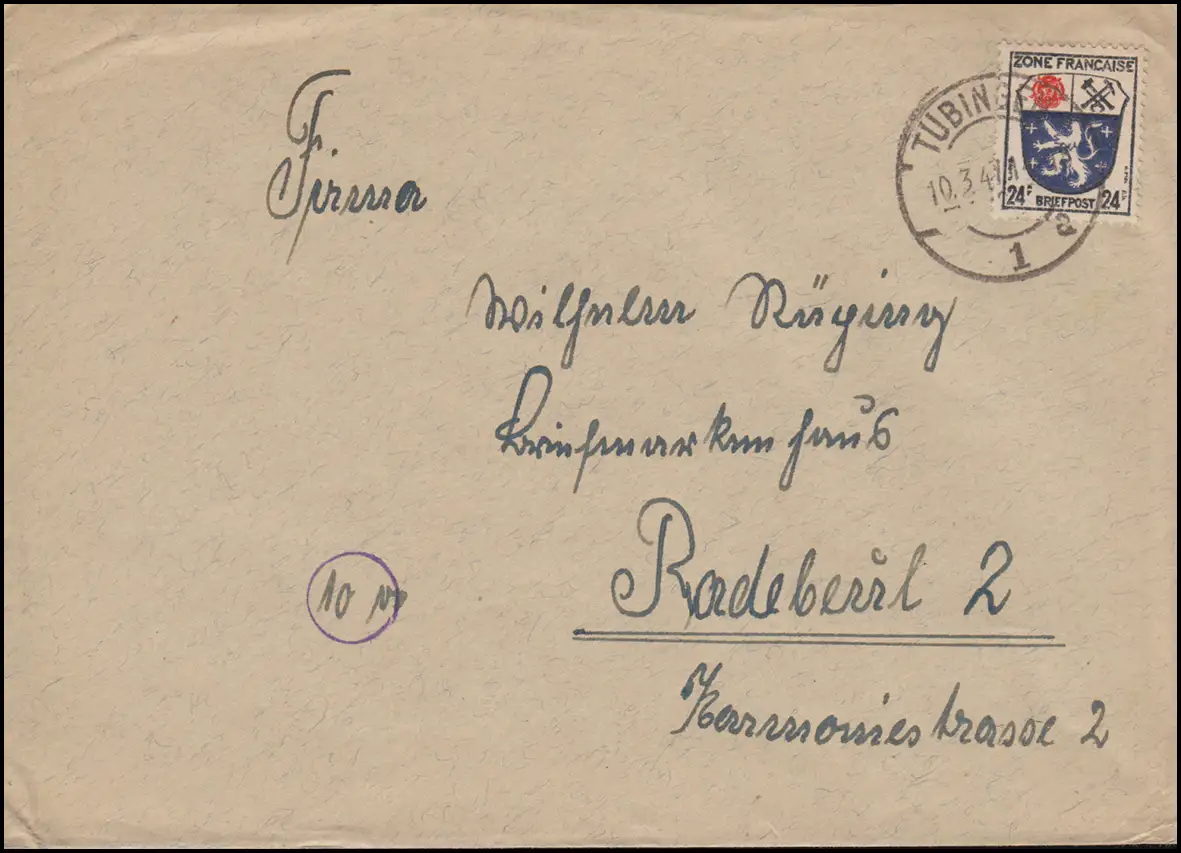 ZONE FRANÇAISE
24F BRIEFPOST 24F
TÜBINGEN
10.3.47
1 a
Firma
Wilhelm Rüging
Briefmarkenhaus
10
Radebeul 2
Harmoniestrasse 2